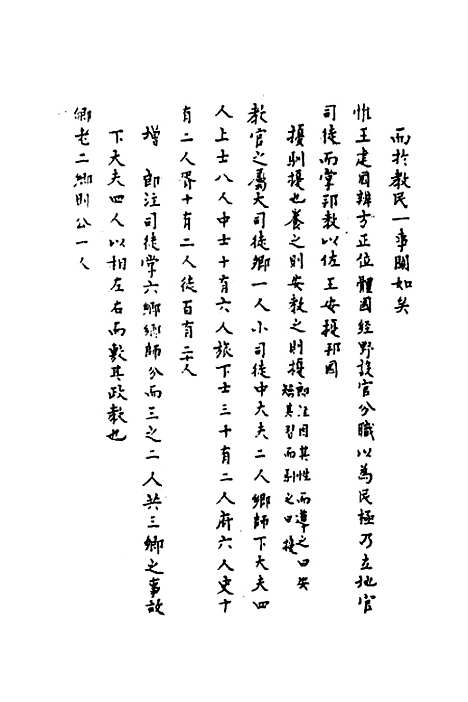 而於教民一事闕如矣
惟王建國辨方正位體國經野設官分職以為民極乃立地官
司徒而掌邦教以佐王安擾邦國
擾馴擾也養之則安教之則擾郎注因其性而導之曰安
殆其習而馴之曰擾
教官之屬大司徒卿一人小司徒中大夫二人鄉師下大夫四
人上士八人中士十有六人旅下士三十有二人府六人史十
有二人胥十有二人徒百有二十人
增 郎注司徒掌六鄉鄉師分而三之二人共三鄉之事故
下大夫四人以相左右而敷其政教也
鄉老二鄉則公一人